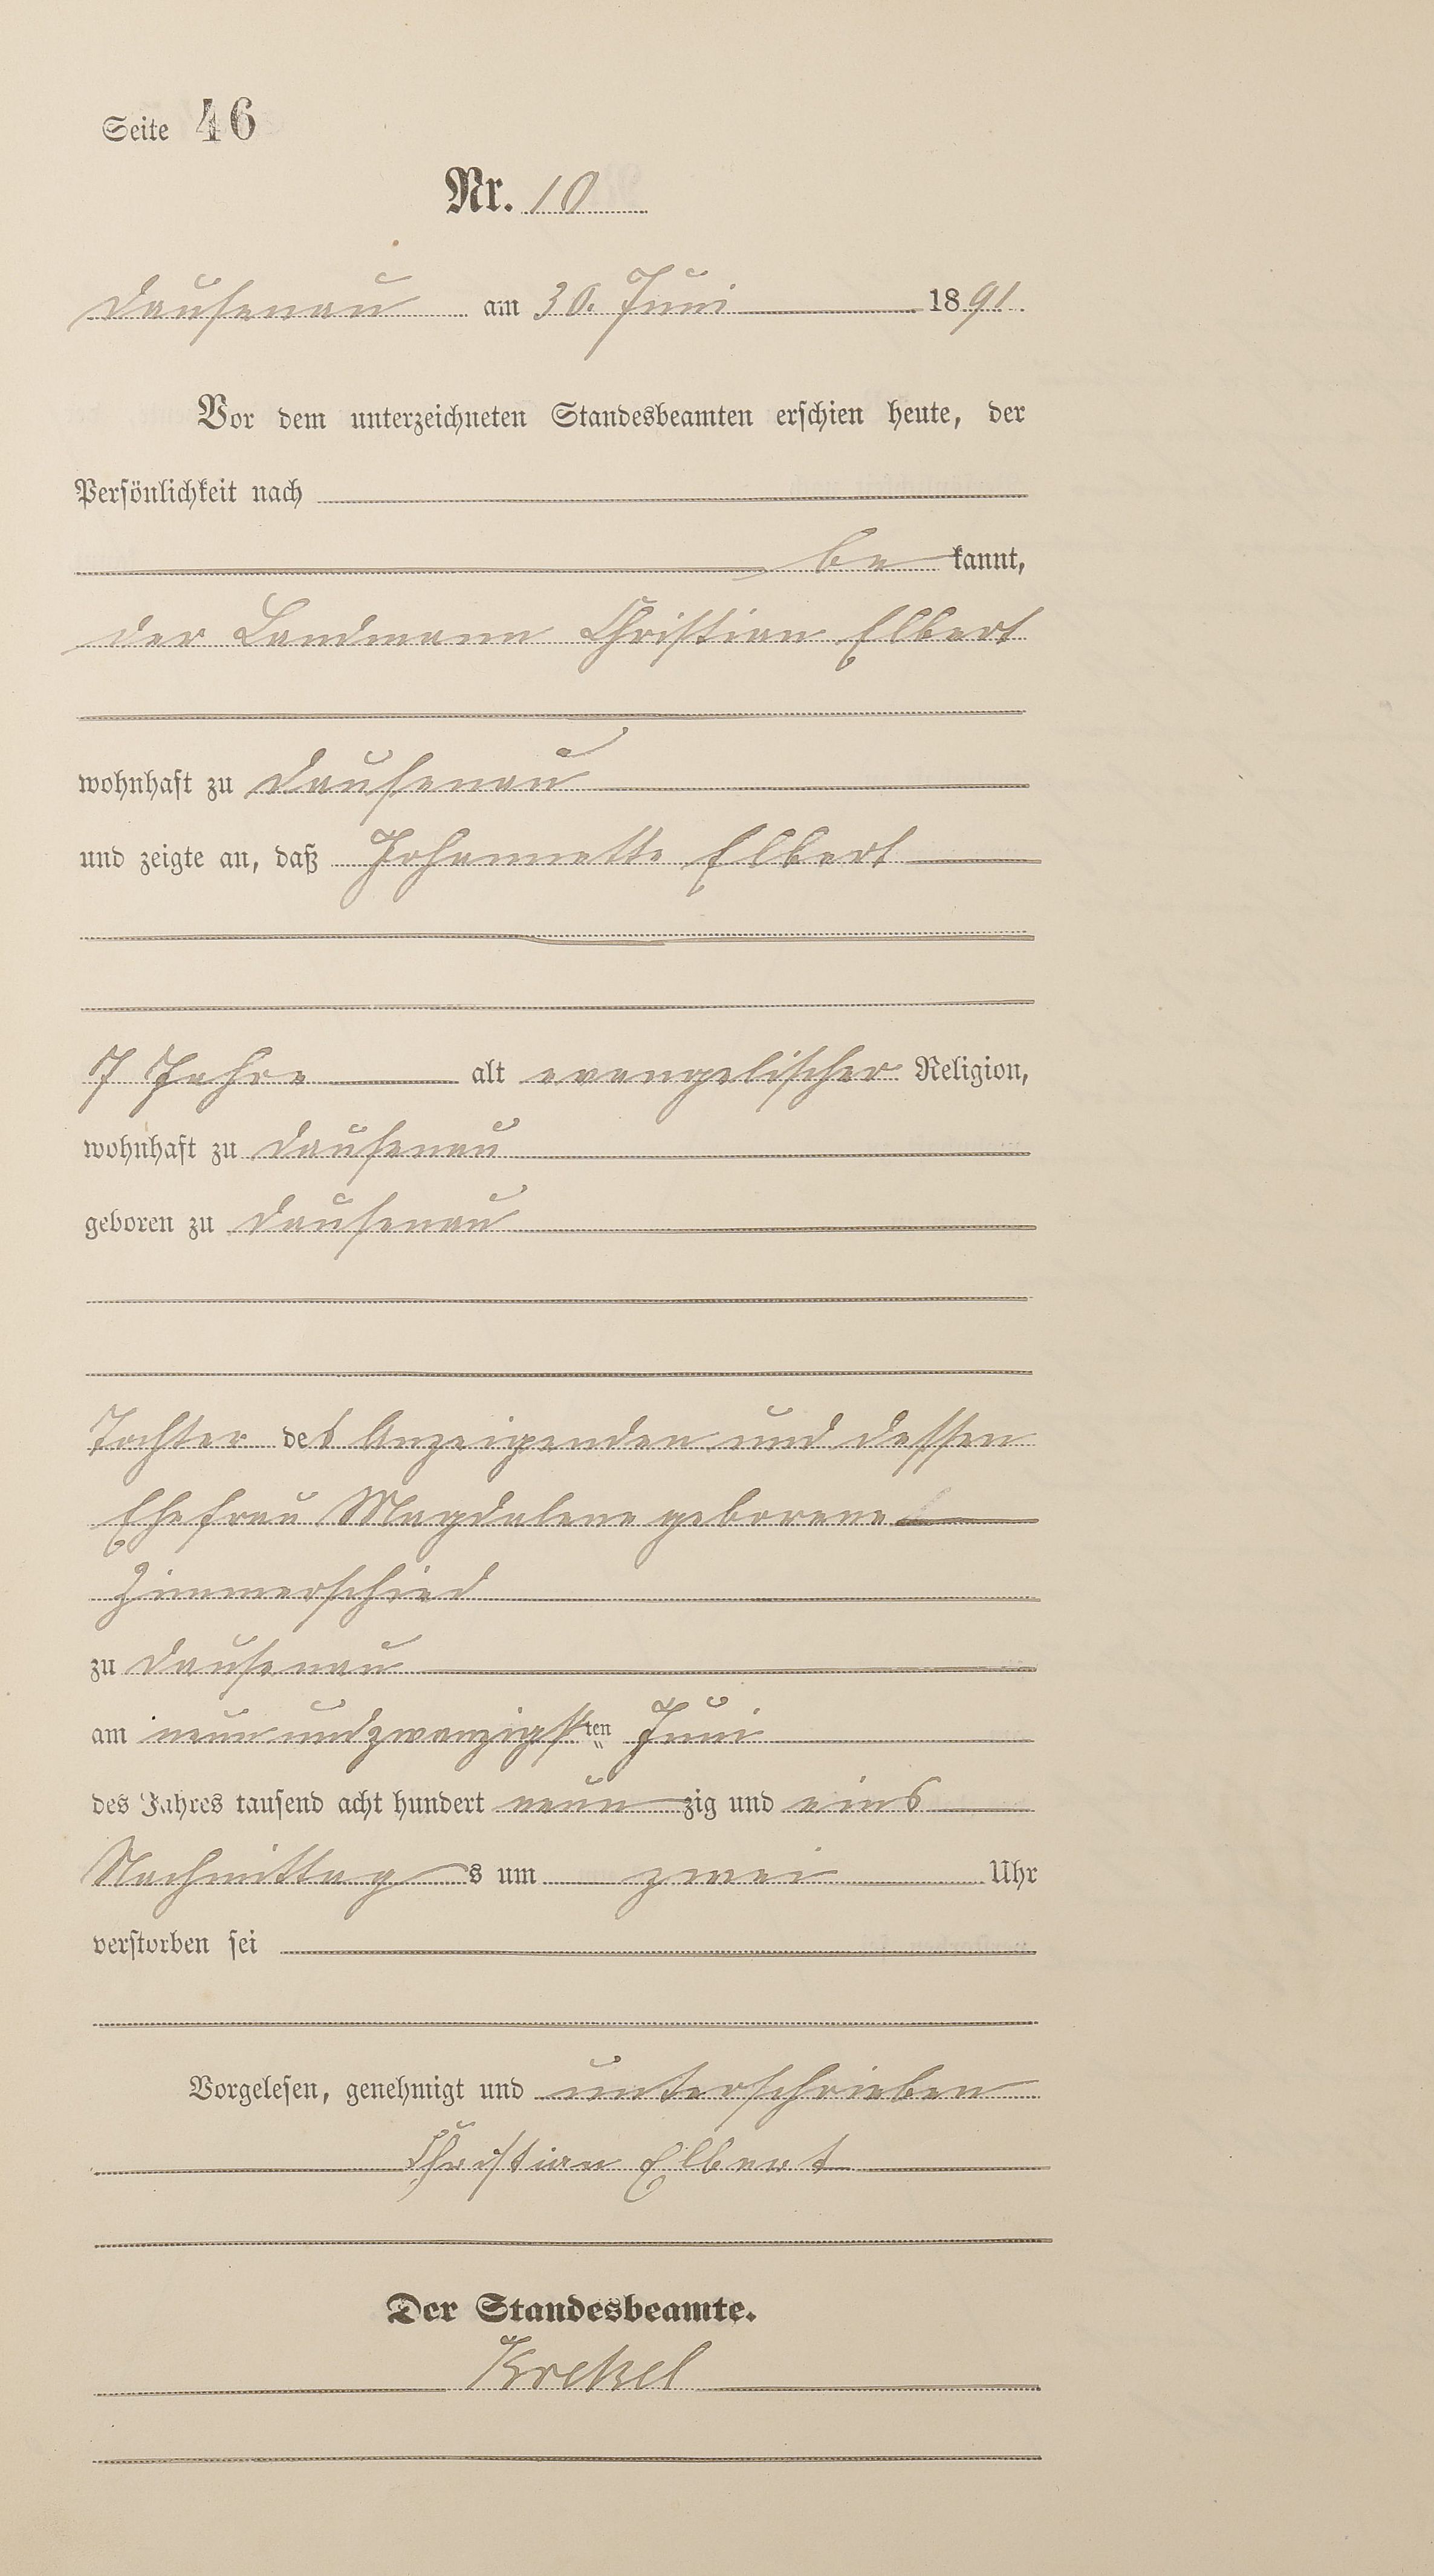 Seite 46
Nr. 10
Dausenau am 30. Juni 1891.
Vor dem unterzeichneten Standesbeamten erschien heute, der
Persönlichkeit nach
be kannt,
der Landmann Christian Elbert
wohnhaft zu Dausenau
und zeigte an, daß Johannette Elbert
7 Jahre alt evangelischer Religion,
wohnhaft zu Dausenau
geboren zu Dausenau
Tochter des Anzeigenden und dessen
Ehefrau Magdalene geborene
Zimmerschied
zu Dausenau
am neun und zwanzigsten Juni
des Jahres tausend acht hundert neunzig und eins
Nachmittags um zwei Uhr
verstorben sei
Vorgelesen, genehmigt und unterschrieben
Christian Elbert
Der Standesbeamte.
Krekel